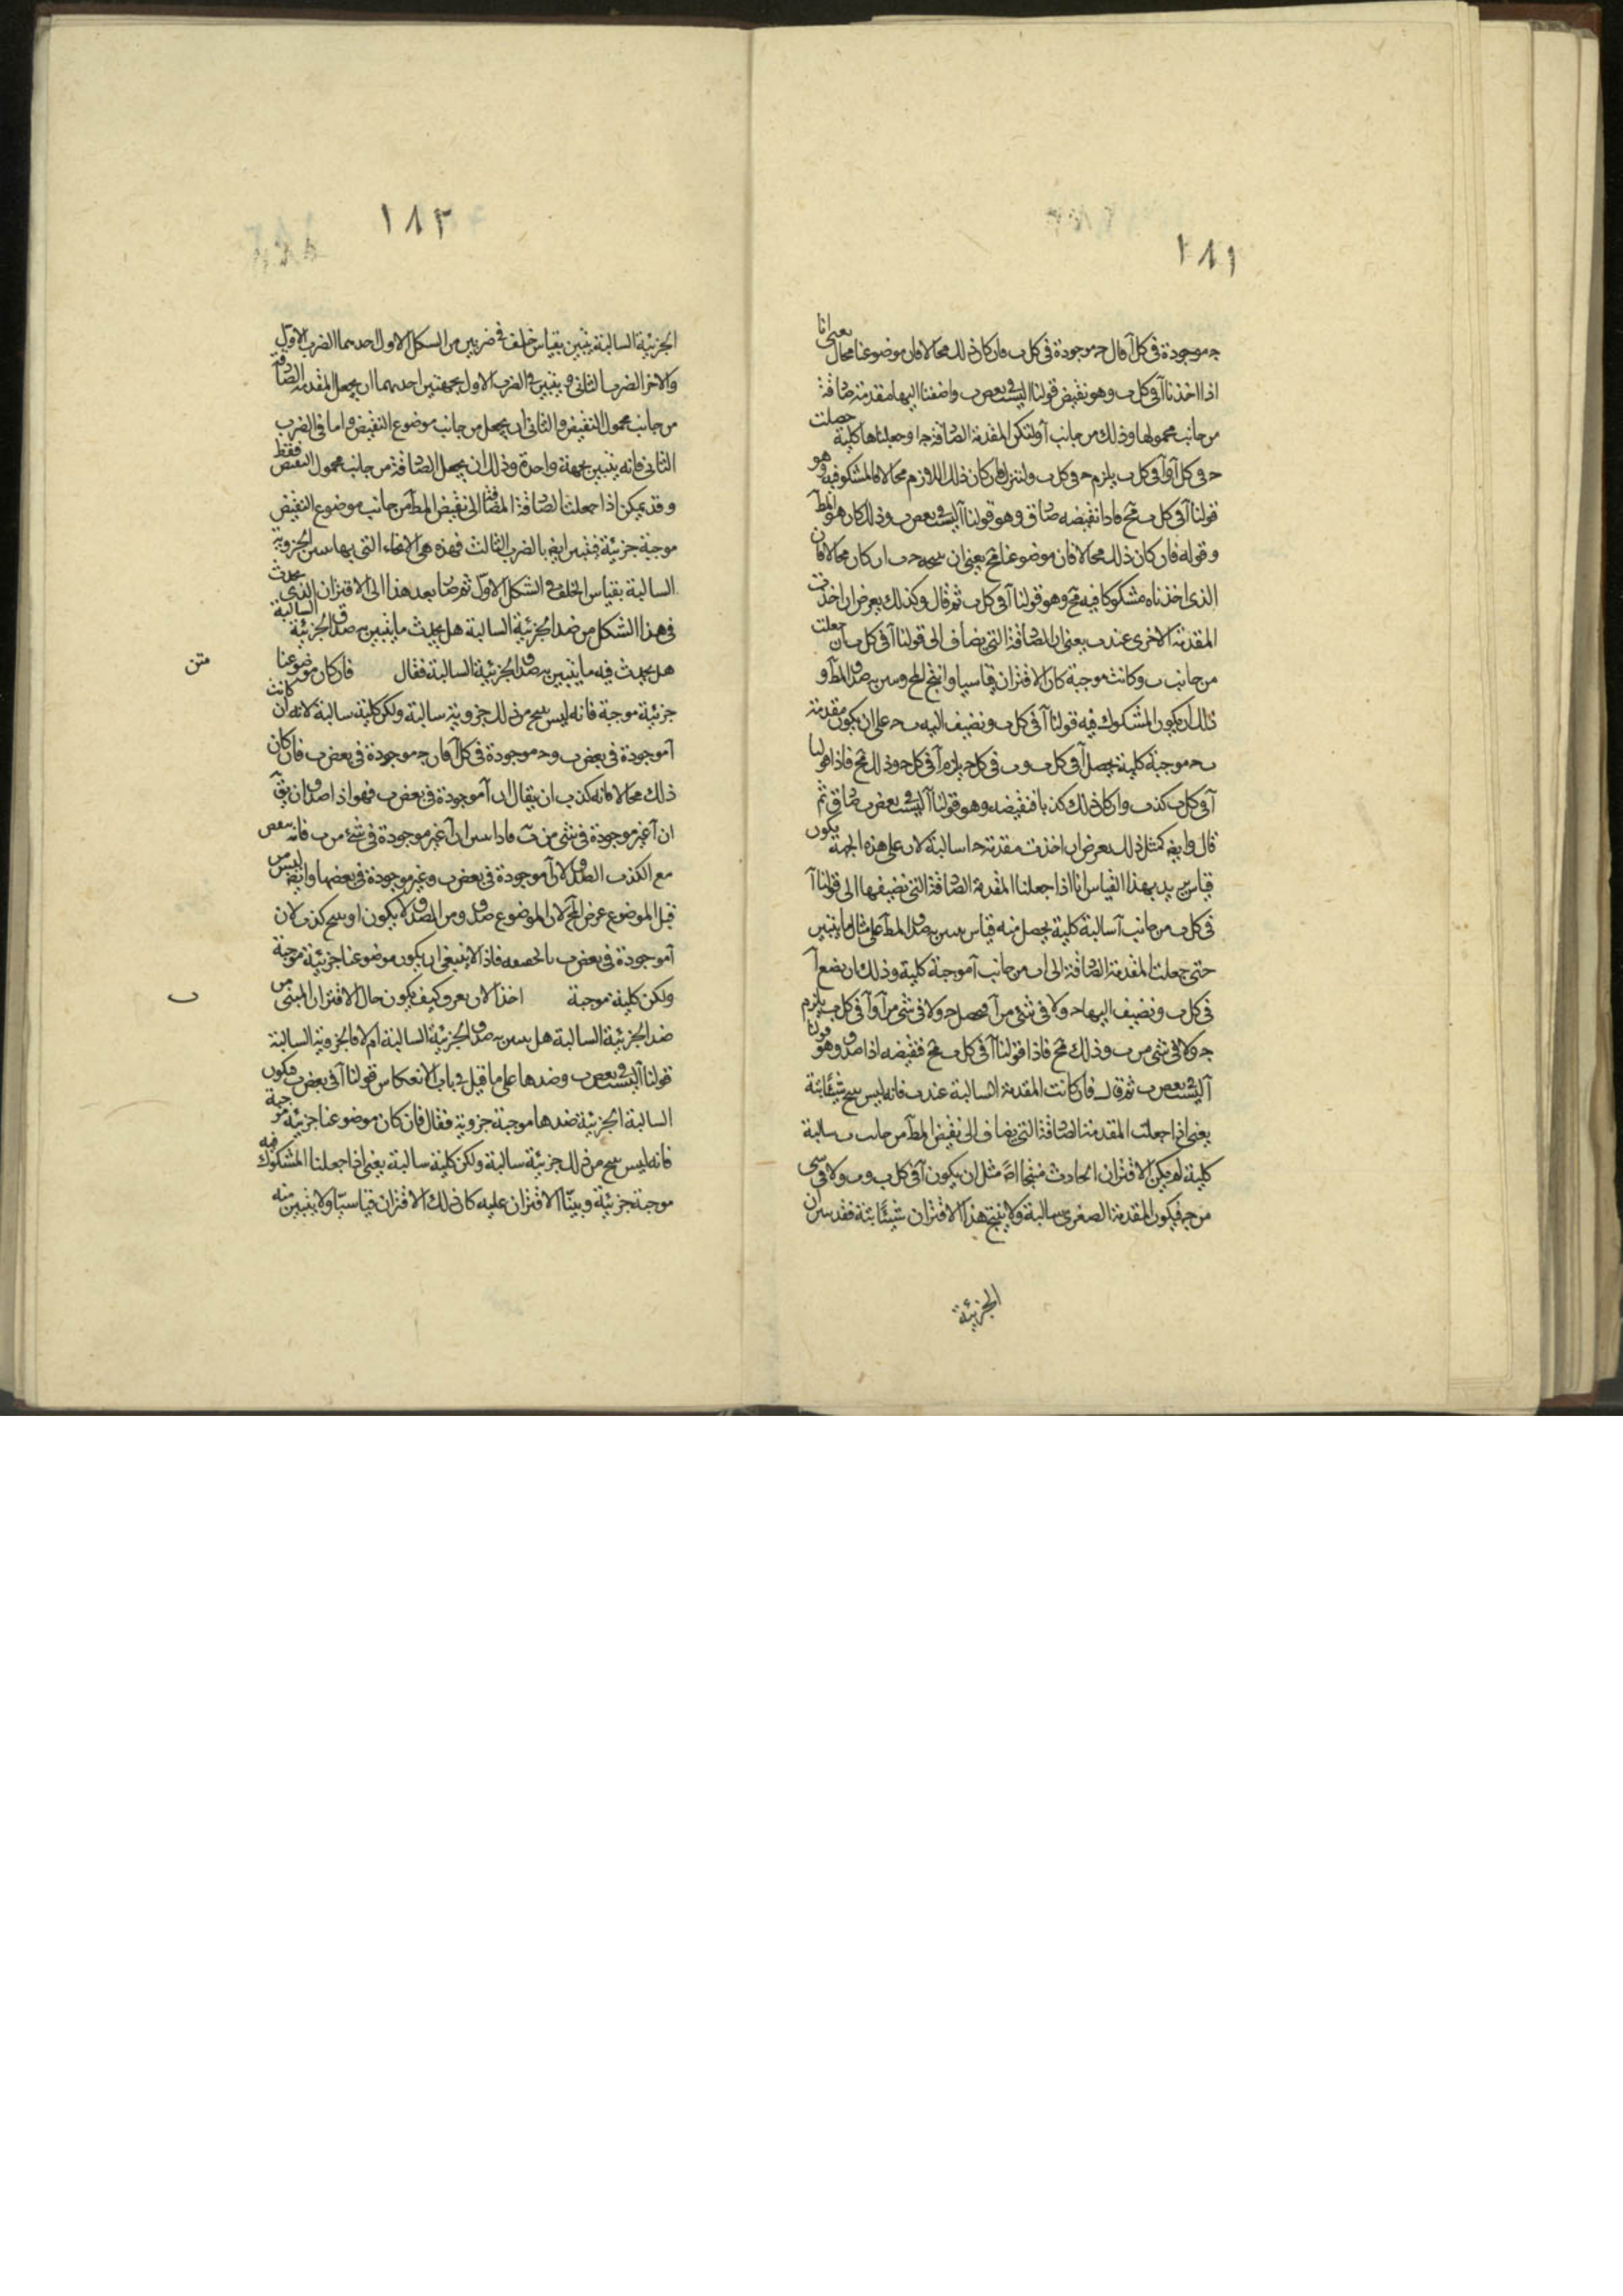 ١٨١
ج موجودة في كل آ قال ج موجودة في كل ب فان كان ذلك محالا فان موضوعنا محال يعني انا
اذا اخذنا آ في كل ب وهو نقيض قولنا آ ليست في بعض ب واضفنا اليها مقدمة صادقة
من جانب محمولها وذلك من جانب آ ولتكن المقدمة الصادقة ج ا وجعلناها كلية حصلت
ج في كل آ وآ في كل ب يلزم ج في كل ب ولننزل ان كان ذلك اللازم محالا فالمشكوك فيه وهو
قولنا آ في كل ب مح فاذا نقيضه صادق وهو قولنا آ ليست في بعض ب وذلك كان هو المط
وقوله فان كان ذلك محالا فان موضوعنا مح يعني ان ج ب ان كان محالا فان
الذي اخذناه مشكوكا فيه مح وهو قولنا آ في كل ب ثم قال وكذلك يعرض ان اخذت
المقدمة الاخرى عند ب يعني ان الصادقة التي يضاف الى قولنا آ في كل ب ان جعلت
من جانب ب وكانت موجبة كان الاقتران قياسيا وانتج المح وتبين به صدق المط و
ذلك ان يكون المشكوك فيه قولنا آ في كل ب ونضيف اليه ب ج على ان يكون مقدمة
ب ج موجبة كلية يحصل آ في كل ب وب في كل ج يلزم آ في كل ج وذلك مح فاذا قولنا
آ في كل ب كذب وان كان ذلك كذبا فنقيضه وهو قولنا آ ليست في بعض ب صادق ثم
قال وايض كمثل ذلك يعرض ان اخذت مقدمة ج ا سالبة لان على هذه الجهة يكون
قياس يريد بهذا القياس انا اذا جعلنا المقدمة الصادقة التي نضيفها الى قولنا آ
في كل ب من جانب آ سالبة كلية يحصل منه قياس يتبين به صدق المط على مثال ما يتبين
حتى جعلت المقدمة الصادقة الى ا ب من جانب آ موجبة كلية وذلك ان نضع آ
في كل ب ونضيف اليها ج ولا في شيء من آ فيحصل ج ولا في شيء من آ وآ في كل ب يلزم
ج ولا في شيء من ب وذلك مح فاذا قولنا آ في كل ب مح فنقيضه اذا صدق وهو قولنا
آ ليست في بعض ب ثم قال فان كانت المقدمة السالبة عند ب فانه ليس ينتج شيئا بتة
يعني اذا جعلت المقدمة الصادقة التي يضاف الى نقيض المط من جانب ب سالبة
كلية لم يكن الاقتران الحادث منتجا اصلا مثل ان يكون آ في كل ب وب ولا في شيء
من ج فيكون المقدمة الصغرى سالبة ولا ينتج هذا الاقتران شيئا بتة فقد تبين ان
الجزئية
١٨٢
الجزئية السالبة يتبين بقياس خلف في ضربين من الشكل الاول احدهما الضرب الاول
والاخر الضرب الثاني ويتبين في الضرب الاول بجهتين احدهما ان يجعل المقدمة الصادقة
من جانب محمول النقيض والثاني ان يجعل من جانب موضوع النقيض واما في الضرب
الثاني فانه يتبين بجهة واحدة وذلك ان يجعل الصادقة من جانب محمول النقيض فقط
وقد يمكن اذا جعلنا الصادقة المضافة الى نقيض المط من جانب موضوع النقيض
موجبة جزئية فيتبين ايض بالضرب الثالث فهذه هي الانحاء التي بها تبين الجزوية
السالبة بقياس الخلف في الشكل الاول ثم صار بعد هذا الى الاقتران الذي يحدث
في هذا الشكل من ضد الجزئية السالبة هل يحدث ما يتبين به صدق الجزئية السالبة
هل يحدث فيه ما يتبين به صدق الجزئية السالبة فقال فان كان موضوعنا
متن
جزئية موجبة فانه ليس ينتج من ذلك جزوية سالبة ولكن كلية سالبة لانه ان كانت
آ موجودة في بعض ب وج موجودة في كل آ فان ج موجودة في بعض ب فان كان
ذلك محالا فانه كذب ان يقال ان آ موجودة في بعض ب فهو اذا صدق ان يق
ان آ غير موجودة في شيء من ب فاذا تبين ان آ غير موجودة في شيء من ب فانه ينقض
مع الكذب الصدق لان آ موجودة في بعض ب وغير موجودة في بعضها وايض ليس من
قبل الموضوع عرض المح لان الموضوع صدق ومن الصدق لا يكون ان ينتج كذب لان
آ موجودة في بعض ب بالحقيقة فاذا لا ينبغي ان يكون موضوعنا جزئية موجبة
ولكن كلية موجبة اخذ الان يعرف كيف يكون حال الاقتران المبنى من
ب
ضد الجزئية السالبة هل يتبين به صدق الجزئية السالبة ام لا فالجزوية السالبة
قولنا آ ليست في بعض ب وضدها على ما قيل في باب الانعكاس قولنا آ في بعض ب فيكون
السالبة الجزئية ضدها موجبة جزوية فقال فان كان موضوعنا جزئية موجبة
فانه ليس ينتج من ذلك جزئية سالبة ولكن كلية سالبة يعني اذا جعلنا المشكوك فيه
موجبة جزئية وبيّنّا الاقتران عليه كان ذلك الاقتران قياسيّا ولا يتبين منه